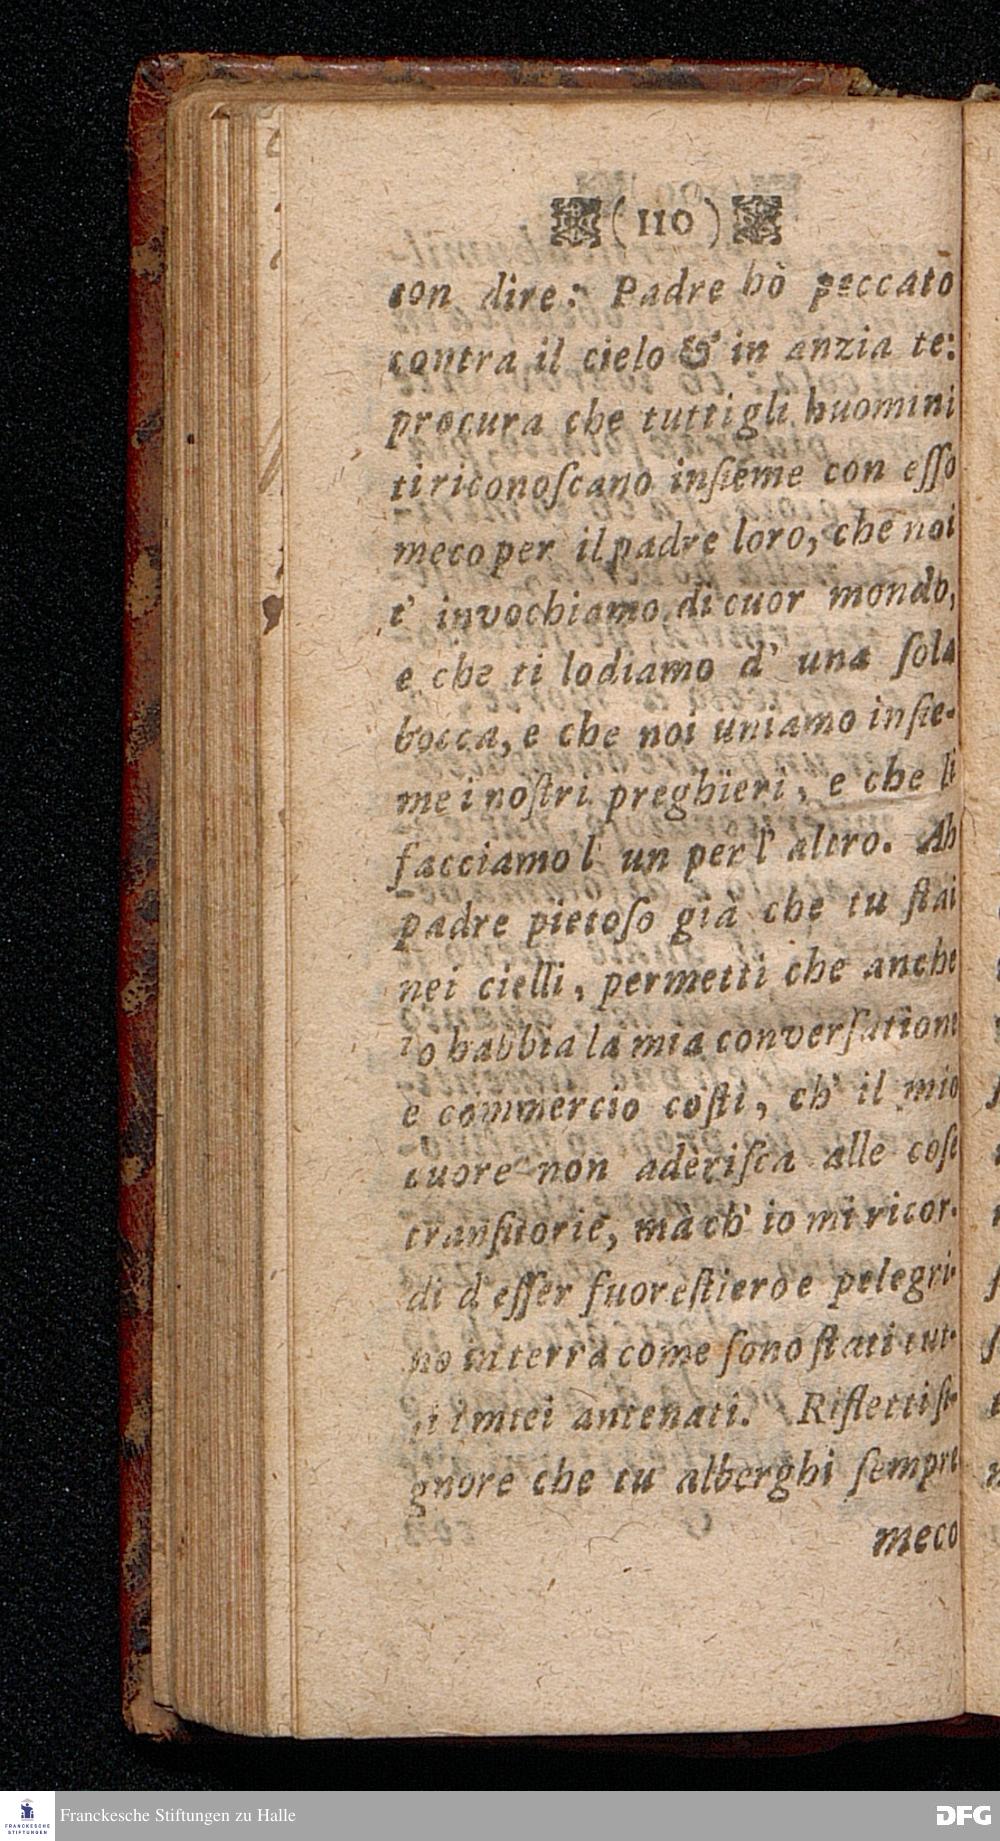 ( 110 )
con dire: Padre hò peccato
contra il cielo & in anzia te:
procura che tutti gli huomini
ti riconoſcano inſieme con eſſo
meco per il padre loro, che noi
t' invochiamo di cuor mondo,
e che ti lodiamo d' una ſola
bocca, e che noi uniamo inſie-
me i noſtri preghïeri, e che li
facciamo l' un per l' altro. Ah
padre pietoſo già che tu ſtai
nei cielli, permetti che anche
io habbia la mia converſatione
e commercio coſti, ch' il mio
cuore non aderiſca alle coſe
tranſitorie, mà ch' io mi ricor-
di d' eſſer fuoreſtiero e pelegri-
no in terra come ſono ſtati tut-
ti i miei antenati. Rifletti ſi-
gnore che tu alberghi ſempre
meco
Franckesche Stiftungen zu Halle
FRANCKESCHE
STIFTUNGEN
DFG